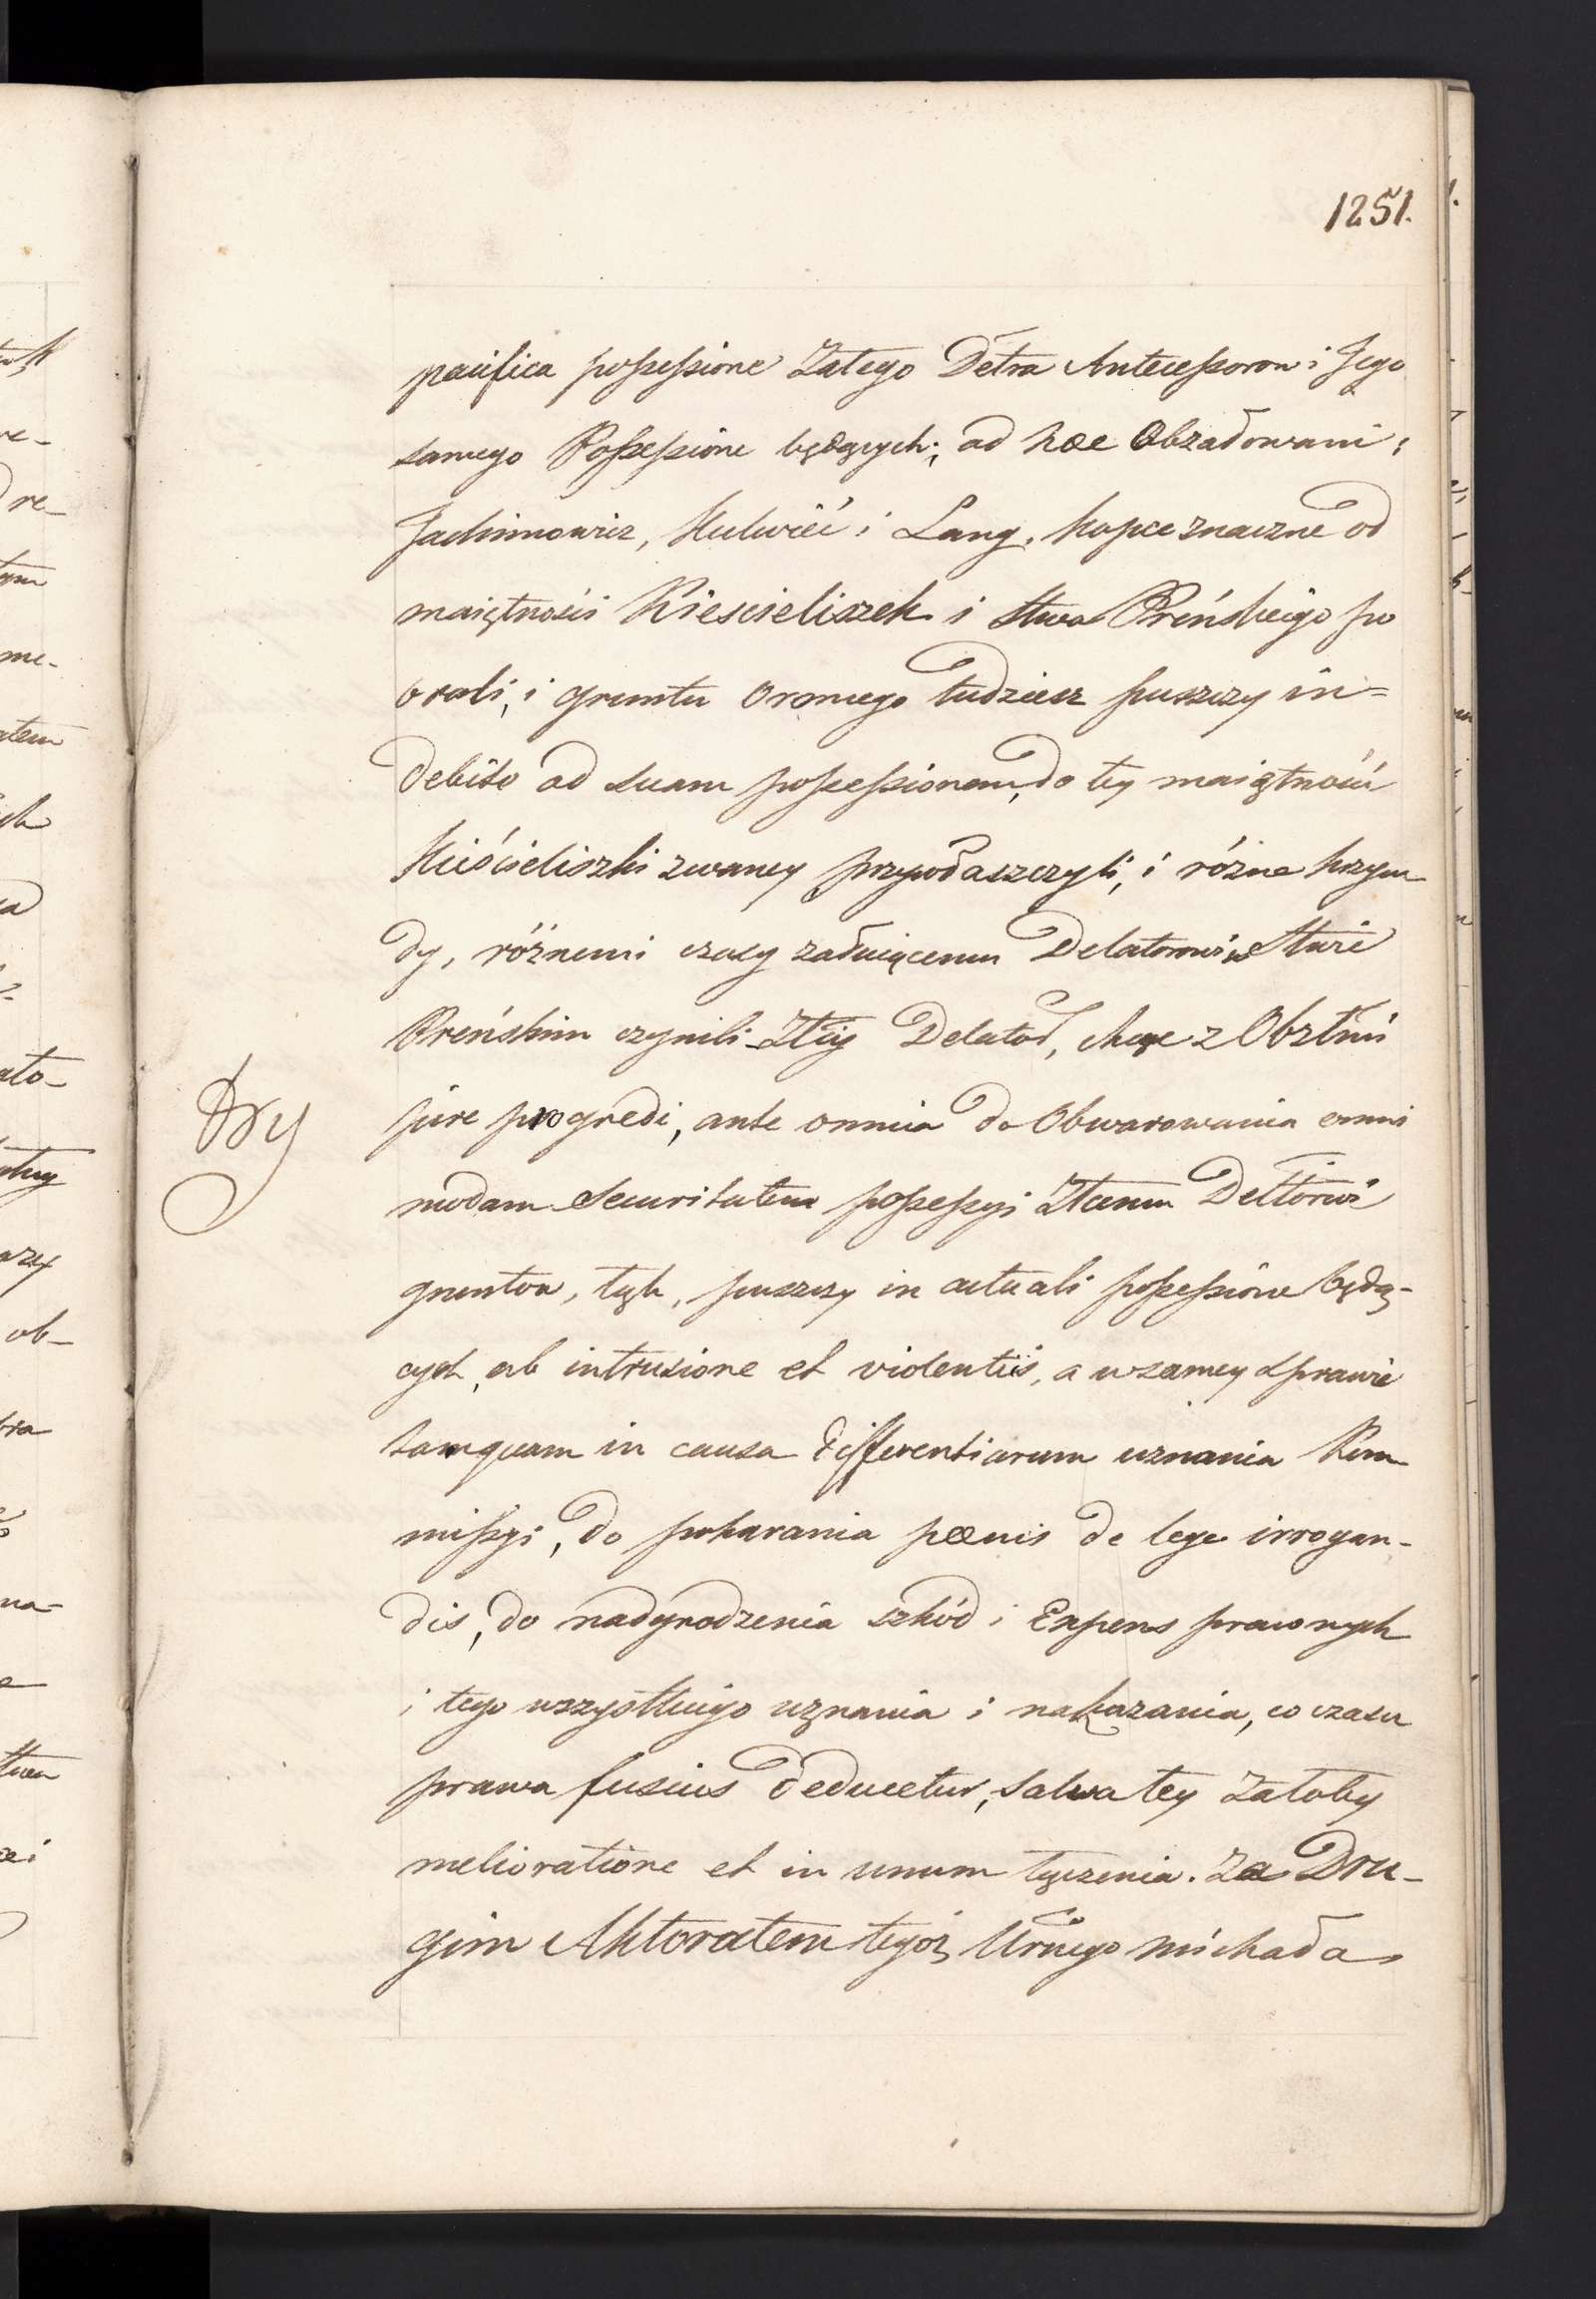 1251.
pacifica possessione Załego Deťra Antecessorow i Jego
samego Possessione będących; ad hoc Obżałowani:
Jachimowicz, Kulwieć i Lang. kopce znaczne od
maiętnośći Kieścieliszek i Stwa Preńskiego po
orali, i gruntu ornnego tudziesz puszczy in=
debite ad suam possessionem, do tey maiętnośći
Kieścieliszki zwaney przywłaszczyli, i różne krzyw
dy, różnemi czasy żałuiącemu Delatorowi w Stwie
Preńskim czynili. Żłcy Delator, chcąc z Obżłmi
jure progredi, ante omnia do Obwarowania omni
modam securitatem possessyi Żłcemu Delltorowi
gruntow, łąk, puszczy in actuali possessione będą-
cych, ab intrusione et violentiis, a w samey sprawie
tamquam in causa differentiarum uznania Kom
missyi, do pokarania pœnis de lege irrogan-
dis, do nadgrodzenia szkód i Expens prawnych
i tego wszystkiego uznania i nakazania, co czasu
prawa fusius deducetur, salwa tey żałoby
melioratione et in unum łączenia. Za Dru-
gim Aktoratem tegoż Urnego Michała